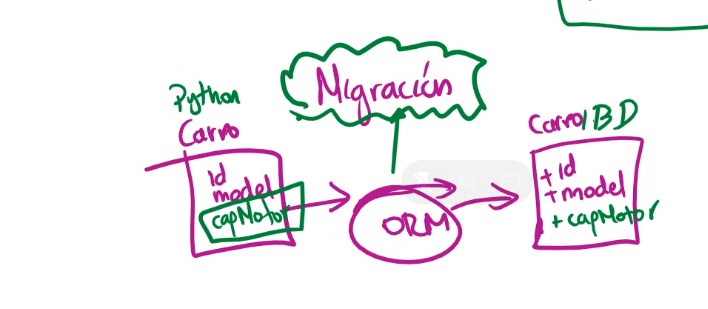 Migración
Python
Carro
Id
model
capMotor
ORM
Carro/BD
+ Id
+ model
+ capMotor